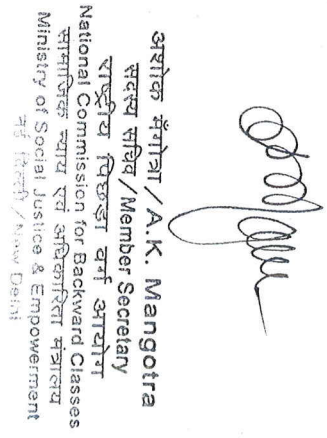 अशोक मँगोत्रा / A. K. Mangotra
सदस्य सचिव / Member Secretary
राष्ट्रीय पिछड़ा वर्ग आयोग
National Commission for Backward Classes
सामाजिक न्याय एवं अधिकारिता मंत्रालय
Ministry of Social Justice & Empowerment
नई दिल्ली / New Delhi